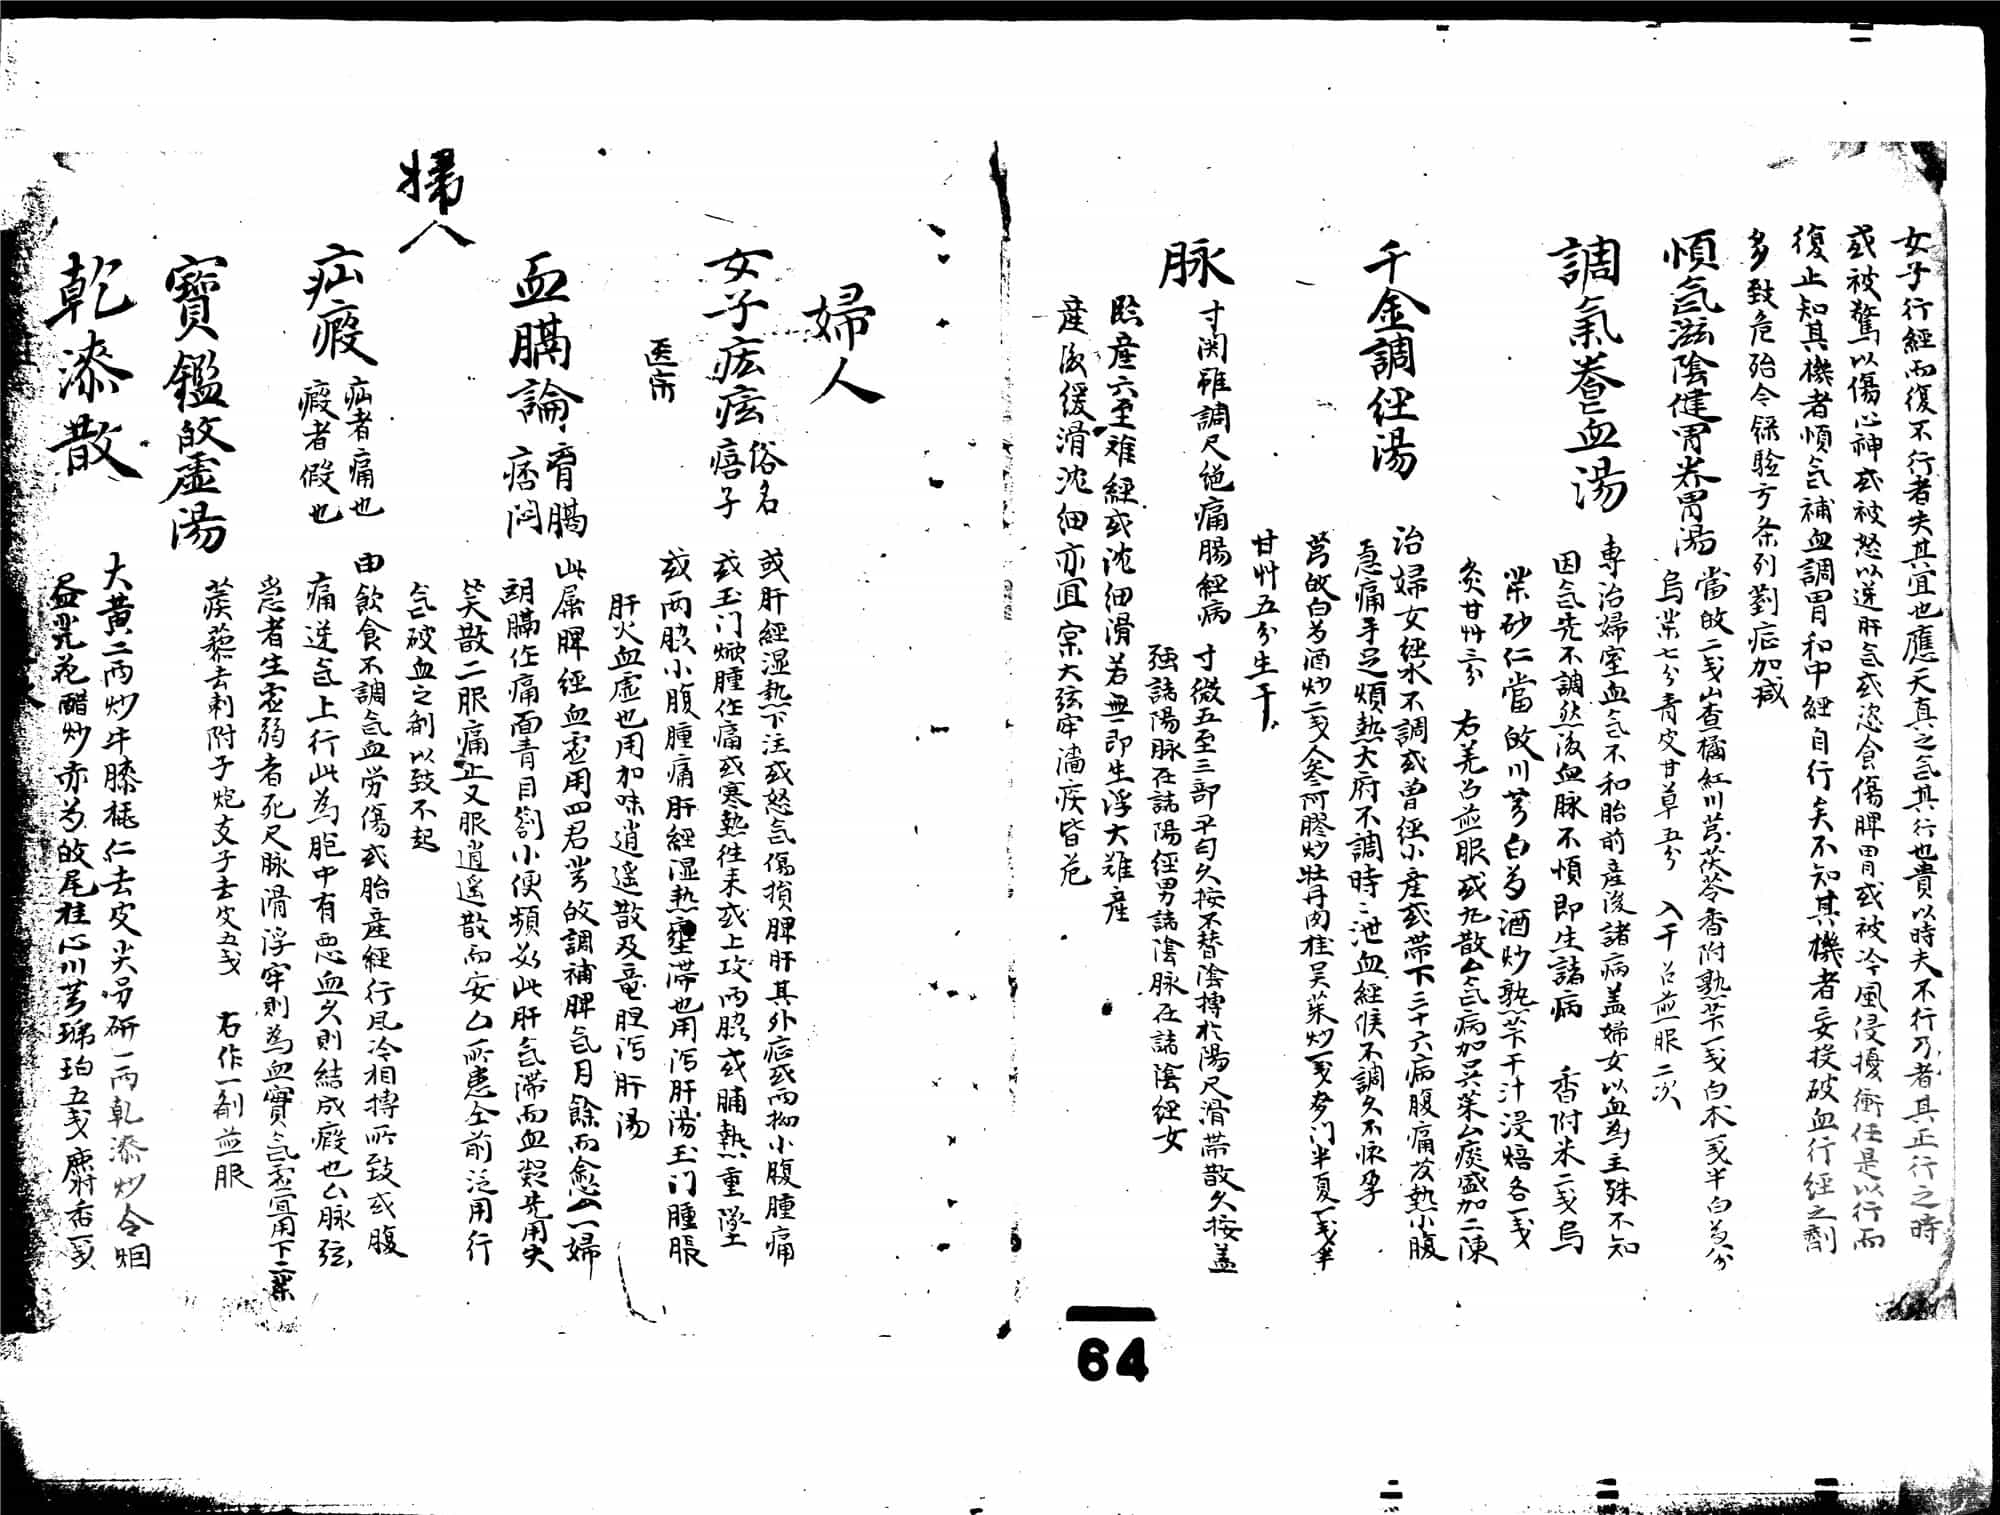 女子行經而復不行者失其宜也應天真之气其行也貴以時夫不行乃者其正行之時
或被驚以傷心神或被怒以逆肝气或恣食傷脾胃或被冷風侵擾衝任是以行而
復止知其機者順气補血調胃和中經自行矣不知其機者妄投破血行經之劑
多致危殆今録验方条列劉症加减
順气滋陰健胃养胃湯
當皈二戋山查橘紅川芎茯苓香附熟芐一戋白朮戋半白芍分
烏柴七分青皮甘草五分 入干 煎服二次
調氣養血湯
専治婦室血气不和胎前産後諸病盖婦女以血為主殊不知
因气先不調然後血脉不順即生諸病 香附米二戋烏
柴砂仁當皈川芎白芍酒炒熟芐干汁浸焙各一戋
炙甘艸三分 右羌为煎服或丸散厶气病加吴茱厶痰盛加二陳
千金調經湯
治婦女經水不調或曾經小産或帯下三十六病腹痛发熱小腹
急痛手足煩熱大府不調時〻泄血經候不調久不怀孕
芎皈白芍酒炒二戋人参阿膠炒牡丹肉桂吴茱炒一戋麥门半夏一戋半
甘艸五分生干
脉
寸関雖調尺绝痛腸經病 寸微五至三部平匀久按不替陰搏於陽尺滑帯散久按盖
强諸陽脉在諸陽經男諸陰脉在諸陰經女
臨産六至难經或沈细滑若無即生浮大难産
産後缓滑沈细亦宜宲大弦牢濇疾皆危
婦人
女子疝痃
俗名
痞子
医宗
或肝經湿热下注或怒气傷損脾肝其外症或两拗小腹腫痛
或玉门焮腫作痛或寒熱往来或上攻两脇或晡熱重墜
或两脇小腹腫痛肝經湿热壅滞也用泻肝湯玉门腫脹
肝火血虚也用加味逍遥散及竜胆泻肝湯
血膈論
胷膈
痞悶
此属脾經血虚用四君芎皈調補脾气月餘而愈厶一婦
胡膈作痛面青目劄小便頻数此肝气滞而血凝先用失
笑散二服痛止又服逍遥散而安厶所患全前泛用行
气破血之剤以致不起
婦人
疝瘕
疝者痛也
瘕者假也
由飲食不調气血劳傷或胎産經行風冷相搏所致或腹
痛逆气上行此為胞中有悪血久則結成瘕也厶脉弦
急者生虚弱者死尺脉滑浮牢則為血實气虚宜用下二薬
寶鑑皈虚湯
蒺藜去刺附子炮支子去皮五戋 右作一剤煎服
乾漆散
大黄二両炒牛膝桃仁去皮尖另研一両乾漆炒令烟
尽芫花醋炒赤芍皈尾桂心川芎琥珀五戋麝香一戋
64